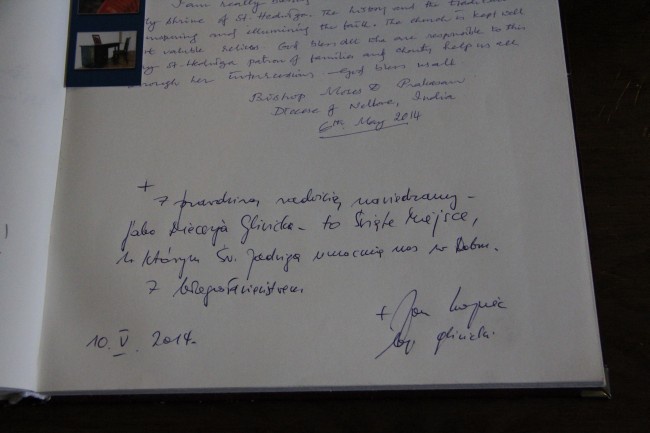 I am really
ly Shrine of St. Hedwiga. The history and the tradition
and illumining the faith. The church is kept well
valuble relices. God bless all who are responsible to this
St. Hedwiga patron of families and charity help us all
through her Intercessions - God bless us all
Bishop Moses D Prakasam
Diocese of Nellore, India
6th May 2014
+
Z prawdziwą radością nawiedzamy -
jako Diecezja Gliwicka - to Święte Miejsce,
w którym Św. Jadwiga umacnia nas w Dobru.
Z błogosławieństwem
+ Jan Kopiec
bp gliwicki
10. V. 2014.